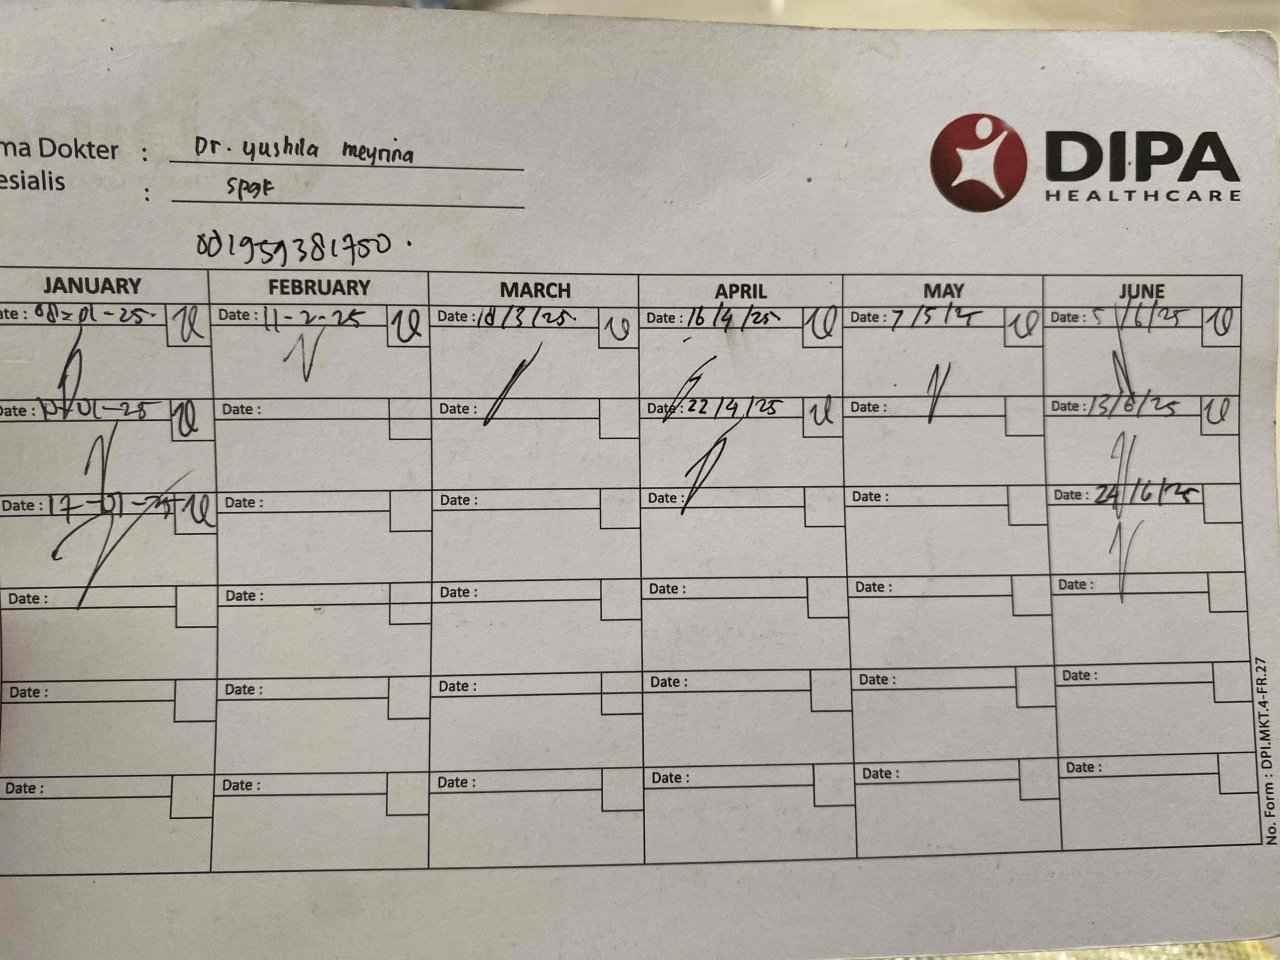 ma Dokter : Dr. yushila meyrina
esialis : spgk
081959381750.
DIPA
HEALTHCARE
JANUARY FEBRUARY MARCH APRIL MAY JUNE
ate: 08-01-25. Date: 11-2-25 Date: 18/3/25. Date: 16/4/25 Date: 7/5/25 Date: 5/6/25
Date: -01-25 Date: Date: Date: 22/4/25 Date: Date: 13/6/25
Date: 17-01-25 Date: Date: Date: Date: Date: 24/6/25
Date: Date: Date: Date: Date: Date:
Date: Date: Date: Date: Date: Date:
Date: Date: Date: Date: Date: Date:
No. Form : DPI.MKT.4-FR.27